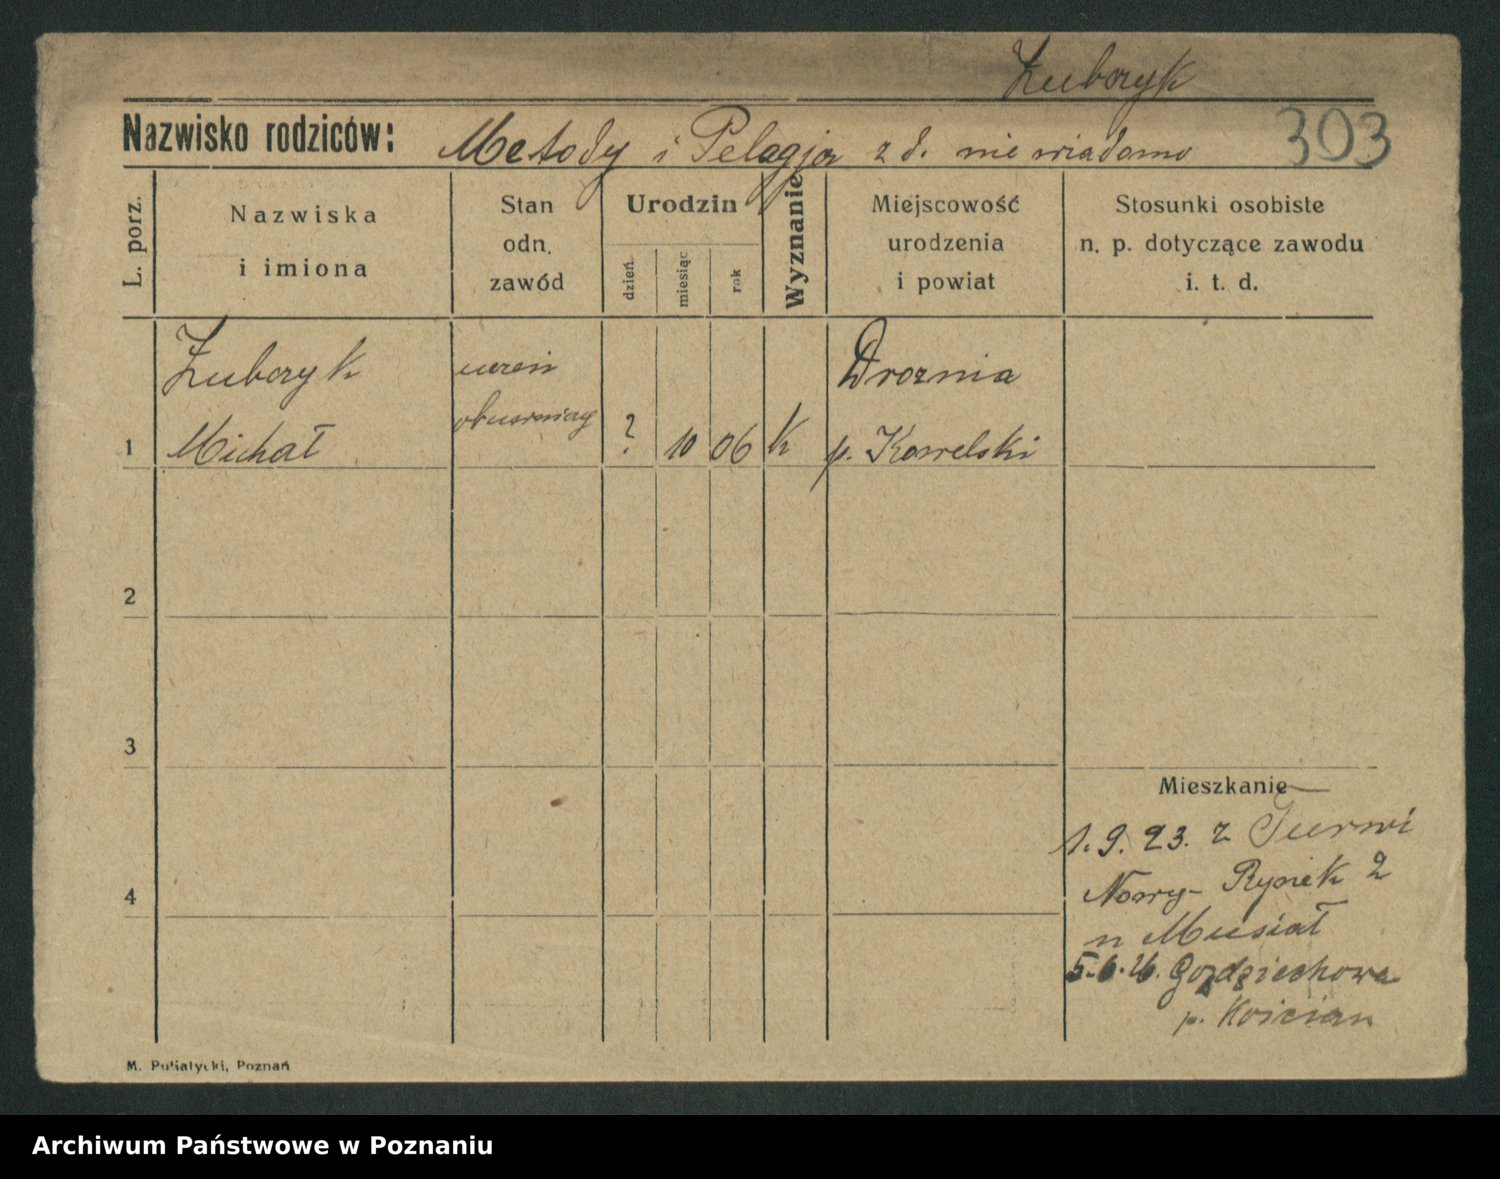 Zubczyk
Nazwisko rodziców: Metody i Pelagja z d. nie wiadomo 303
L. porz.
Nazwiska
i imiona
Stan
odn.
zawód
Urodzin
dzień
miesiąc
rok
Wyznanie
Miejscowość
urodzenia
i powiat
Stosunki osobiste
n. p. dotyczące zawodu
i. t. d.
Zubczyk uczeń Droznia
1 Michał ? 10 06 K p. Kowelski
2
3
Mieszkanie
1.9.23. z Turwi
4 Nowy-Rynek 2
u Musiał
5.6.26. Gozdziechowo
p. Kościan
M. Putiatycki, Poznań
Archiwum Państwowe w Poznaniu